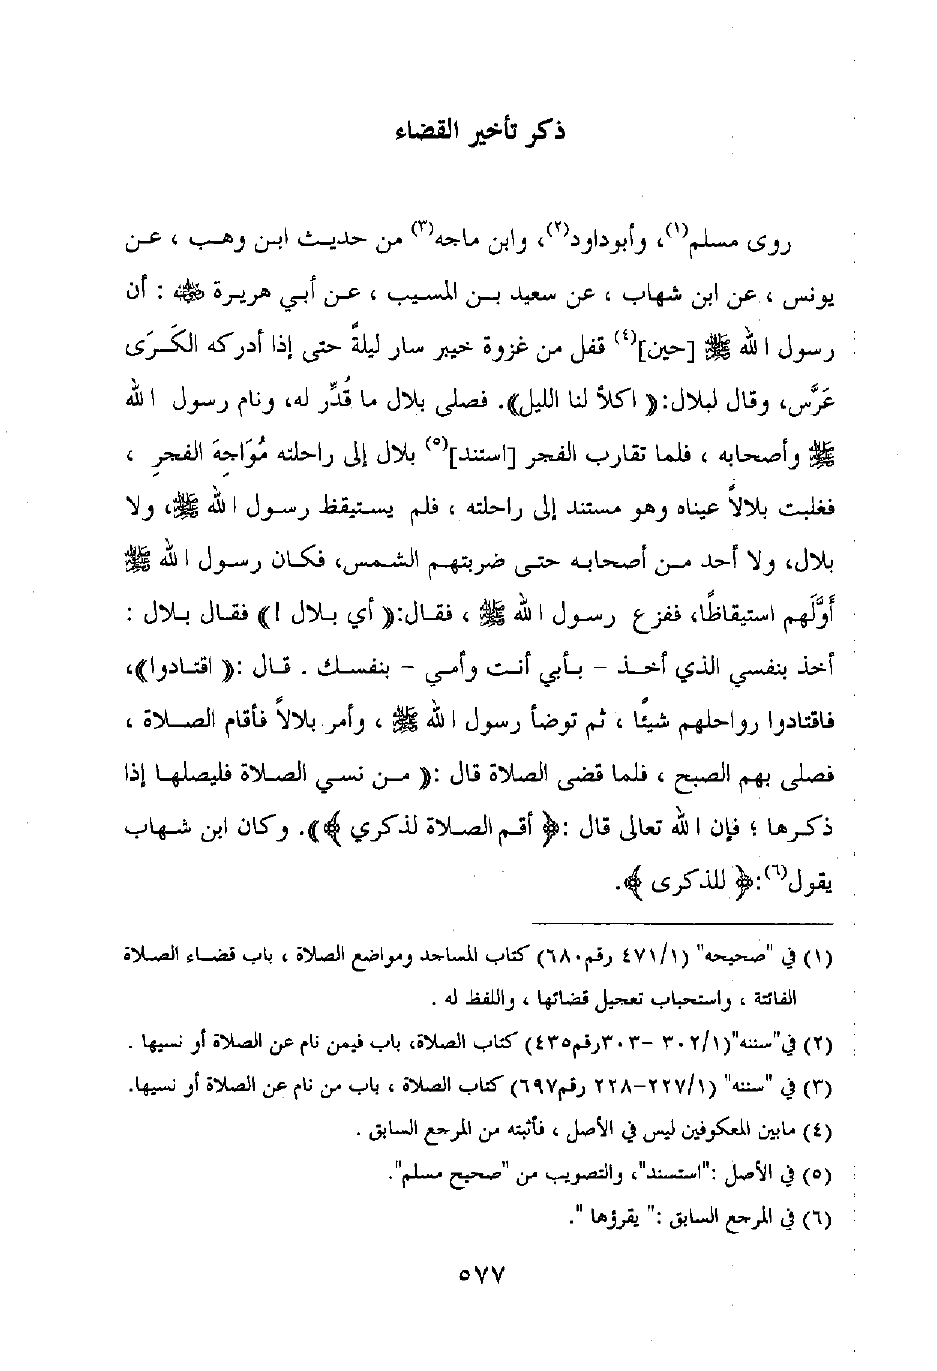 ذكر تأخير القضاء
روى مسلم(١)، وأبوداود(٢)، وابن ماجه(٣) من حديث ابن وهب ، عن
يونس ، عن ابن شهاب ، عن سعيد بن المسيب ، عن أبي هريرة ﷺ : أن
رسول الله ﷺ [حين](٤) قفل من غزوة خيبر سار ليلةً حتى إذا أدركه الكَرَى
عَرَّس، وقال لبلال:(( اكلأ لنا الليل)). فصلى بلال ما قُدِّر له، ونام رسول الله
ﷺ وأصحابه ، فلما تقارب الفجر [استند](٥) بلال إلى راحلته مُوَاجِهَ الفجرِ ،
فغلبت بلالاً عيناه وهو مستند إلى راحلته ، فلم يستيقظ رسول الله ﷺ، ولا
بلال، ولا أحد من أصحابه حتى ضربتهم الشمس، فكان رسول الله ﷺ
أوَّلَهم استيقاظًا، ففزع رسول الله ﷺ ، فقال:(( أي بلال !)) فقال بلال :
أخذ بنفسي الذي أخذ - بأبي أنت وأمي - بنفسك . قال :(( اقتادوا))،
فاقتادوا رواحلهم شيئًا ، ثم توضأ رسول الله ﷺ ، وأمر بلالاً فأقام الصلاة ،
فصلى بهم الصبح ، فلما قضى الصلاة قال :(( من نسي الصلاة فليصلها إذا
ذكرها ؛ فإن الله تعالى قال :﴿ أقم الصلاة لذكري ﴾)). وكان ابن شهاب
يقول(٦):﴿ للذكرى ﴾.
(١) في "صحيحه" (٤٧١/١ رقم٦٨٠) كتاب المساجد ومواضع الصلاة ، باب قضاء الصلاة
الفائتة ، واستحباب تعجيل قضائها ، واللفظ له .
(٢) في"سننه"(٣٠٢/١ -٣٠٣رقم٤٣٥) كتاب الصلاة، باب فيمن نام عن الصلاة أو نسيها .
(٣) في "سننه" (٢٢٧/١-٢٢٨ رقم٦٩٧) كتاب الصلاة ، باب من نام عن الصلاة أو نسيها.
(٤) مابين المعكوفين ليس في الأصل ، فأثبته من المرجع السابق .
(٥) في الأصل :"استسند"، والتصويب من "صحيح مسلم".
(٦) في المرجع السابق :" يقرؤها ".
٥٧٧